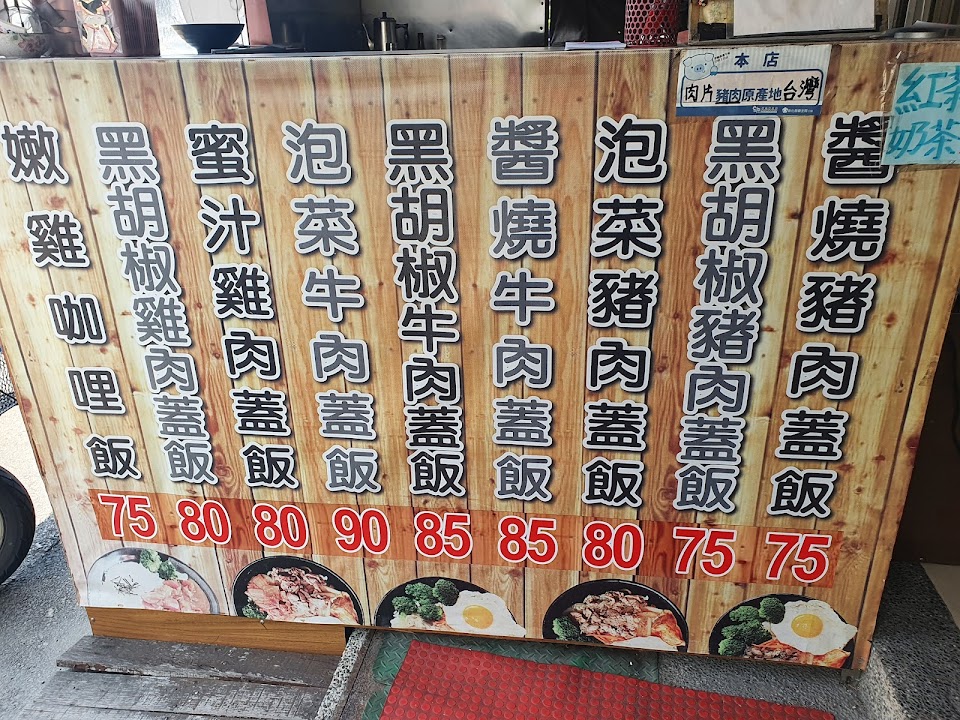 本店
肉片 豬肉原產地台灣
紅茶
奶茶
醬燒豬肉蓋飯
75
黑胡椒豬肉蓋飯
75
泡菜豬肉蓋飯
80
醬燒牛肉蓋飯
85
黑胡椒牛肉蓋飯
85
泡菜牛肉蓋飯
90
蜜汁雞肉蓋飯
80
黑胡椒雞肉蓋飯
80
嫩雞咖哩飯
75